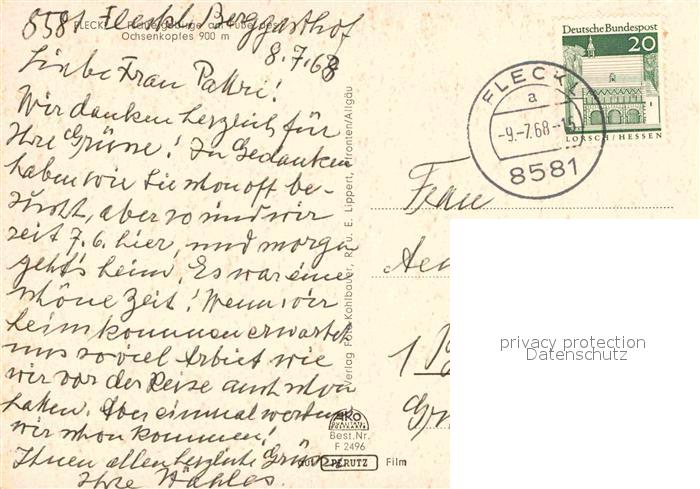 8581 Fleckl Berggasthof
FLECKL Fichtelgebirge am Fuße des
Ochsenkopfes 900 m
8.7.68
Liebe Frau
Wir danken herzlich für
Ihre Grüsse! In Gedanken
haben wir Sie schon oft be-
sucht, aber so sind wir
seit 7.6. hier, und morgen
geht's heim. Es war eine
schöne Zeit! Wenn wir
heimkommen erwartet
uns soviel Arbeit wie
wir vor der Reise auch schon
hatten. Aber einmal werden
wir schon kommen!
Ihnen allen herzliche Grüsse
Ihre
Verlag Foto-Kohlbauer, Repro. E. Lippert, Pfronten/Allgäu
AKO
QUALITÄTS
POSTKARTE
Best.Nr.
F 2496
auf PERUTZ Film
Deutsche Bundespost
20
LORSCH/HESSEN
FLECKL
a
-9.-7.68-15
8581
Frau
1
privacy protection
Datenschutz